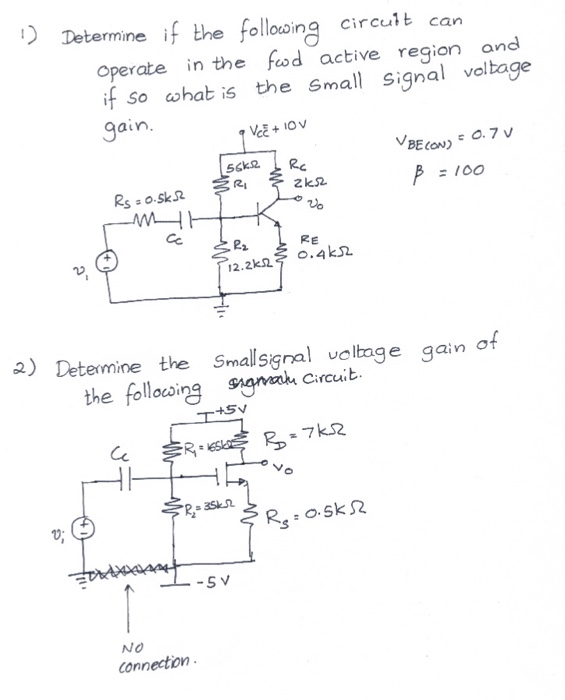 1) Determine if the following circuit can
operate in the fwd active region and
if so what is the small signal voltage
gain.
Vcc + 10V
VBE(ON) = 0.7V
β = 100
56kΩ
R1
Rc
2kΩ
vo
Rs = 0.5kΩ
Cc
R2
12.2kΩ
RE
0.4kΩ
vi
2) Determine the Smallsignal voltage gain of
the following circuit.
+5V
Cc
R1 = 165kΩ
RD = 7kΩ
Vo
R2 = 35kΩ
Rs = 0.5kΩ
vi
-5V
NO
connection.